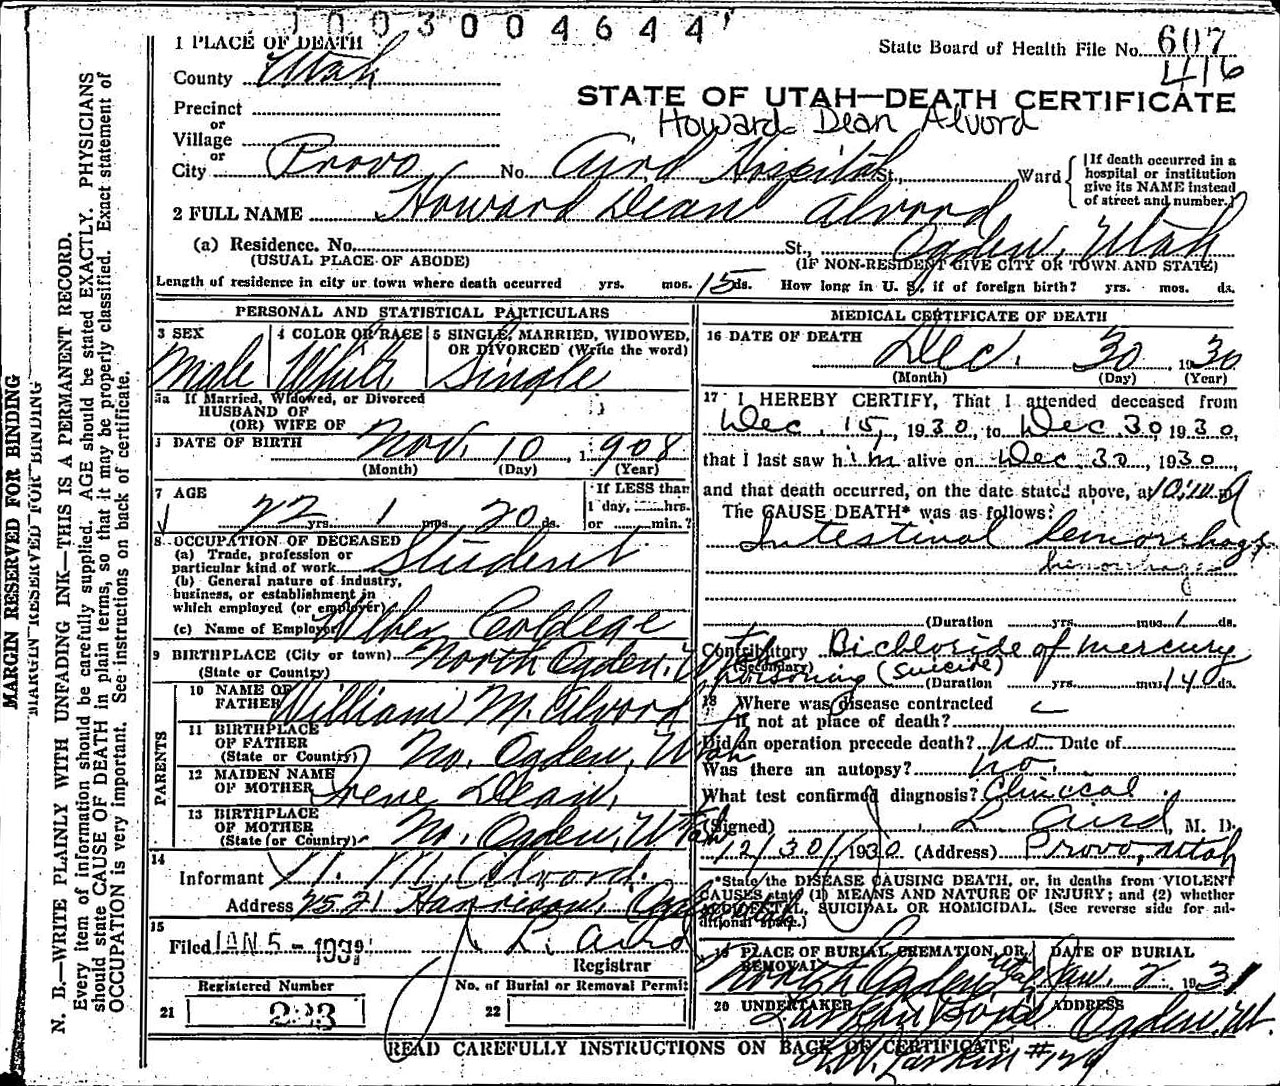 1003004644
State Board of Health File No. 607
416
STATE OF UTAH—DEATH CERTIFICATE
Howard Dean Alvord
1 PLACE OF DEATH
County Utah
Precinct
or
Village
or
City Provo No. Aird Hospital St., Ward
(If death occurred in a hospital or institution give its NAME instead of street and number.)
2 FULL NAME Howard Dean Alvord
(a) Residence. No. St., Ogden, Utah
(USUAL PLACE OF ABODE) (IF NON-RESIDENT GIVE CITY OR TOWN AND STATE)
Length of residence in city or town where death occurred yrs. mos. 15 ds. How long in U. S. if of foreign birth? yrs. mos. ds.
PERSONAL AND STATISTICAL PARTICULARS
3 SEX
Male
4 COLOR OR RACE
White
5 SINGLE, MARRIED, WIDOWED, OR DIVORCED (Write the word)
Single
5a If Married, Widowed, or Divorced
HUSBAND OF
(OR) WIFE OF
DATE OF BIRTH Nov. 10, 1908
(Month) (Day) (Year)
7 AGE
22 yrs. 1 mos. 20 ds.
If LESS than
1 day, hrs.
or min.?
8 OCCUPATION OF DECEASED
(a) Trade, profession or
particular kind of work Student
(b) General nature of industry,
business, or establishment in
which employed (or employer)
(c) Name of Employer Weber College
9 BIRTHPLACE (City or town) North Ogden, Utah
(State or Country)
PARENTS
10 NAME OF
FATHER William M. Alvord
11 BIRTHPLACE
OF FATHER No. Ogden, Utah
(State or Country)
12 MAIDEN NAME
OF MOTHER Irene Dean,
13 BIRTHPLACE
OF MOTHER No. Ogden, Utah
(State or Country)
14
Informant W. M. Alvord.
Address 2521 Harrison, Ogden
15
Filed JAN 5 - 1931 J. L. Aird
Registrar
Registered Number
21 203
No. of Burial or Removal Permit
22
MEDICAL CERTIFICATE OF DEATH
16 DATE OF DEATH
Dec. 30, 1930
(Month) (Day) (Year)
17 I HEREBY CERTIFY, That I attended deceased from
Dec. 15, 1930, to Dec 30, 1930,
that I last saw him alive on Dec. 30, 1930,
and that death occurred, on the date stated above, at
The CAUSE DEATH* was as follows:
Intestinal hemorrhage
hemorrhage
(Duration yrs. mos. 1 ds.
Contributory Bichloride of mercury
(Secondary) poisoning (suicide)
(Duration yrs. mos. 14 ds.
18 Where was disease contracted
if not at place of death?
Did an operation precede death? no Date of
Was there an autopsy? no.
What test confirmed diagnosis? Clinical
(Signed) J. L. Aird, M. D.
12/30/1930 (Address) Provo, Utah
*State the DISEASE CAUSING DEATH, or, in deaths from VIOLENT
CAUSES state (1) MEANS AND NATURE OF INJURY; and (2) whether
ACCIDENTAL, SUICIDAL OR HOMICIDAL. (See reverse side for ad-
ditional space.)
19 PLACE OF BURIAL, CREMATION, OR REMOVAL
North Ogden Utah
DATE OF BURIAL
Jan. 2 1931
20 UNDERTAKER
Larkin & Sons
ADDRESS
Ogden, Ut.
READ CAREFULLY INSTRUCTIONS ON BACK OF CERTIFICATE
MARGIN RESERVED FOR BINDING
MARGIN RESERVED FOR BINDING
N. B.—WRITE PLAINLY WITH UNFADING INK—THIS IS A PERMANENT RECORD.
Every item of information should be carefully supplied. AGE should be stated EXACTLY. PHYSICIANS
should state CAUSE OF DEATH in plain terms, so that it may be properly classified. Exact statement of
OCCUPATION is very important. See instructions on back of certificate.